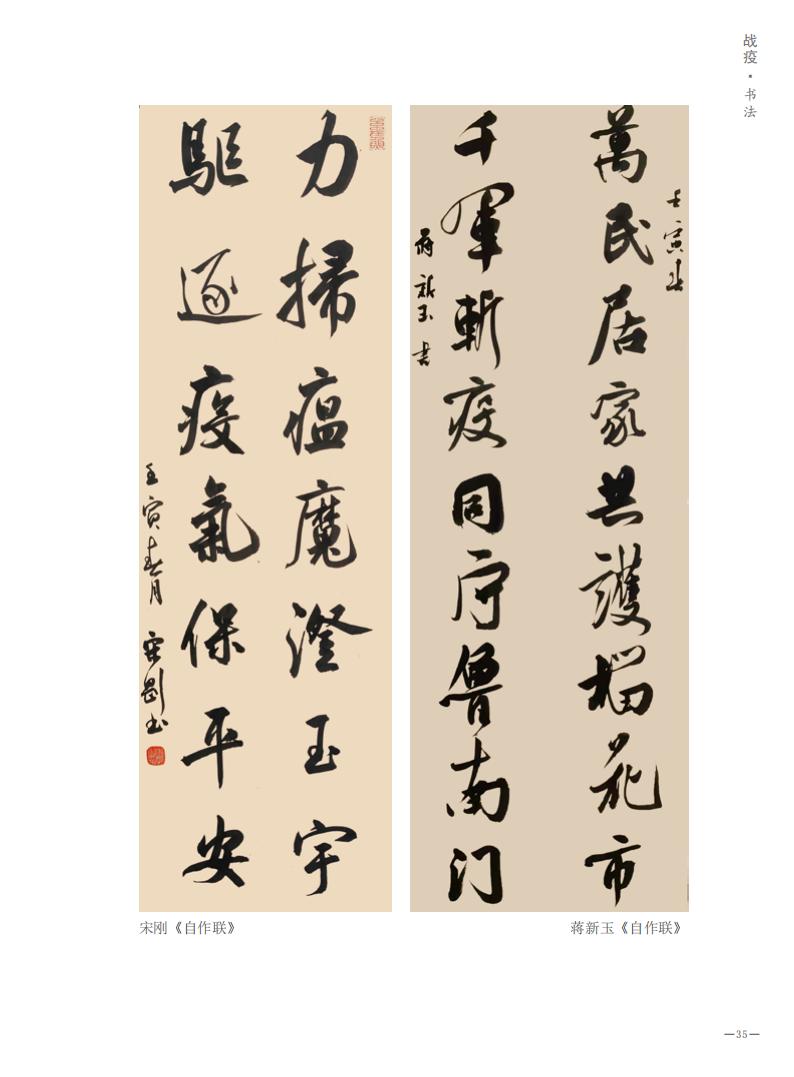 战疫·书法
壬寅春
萬民居家共護榴花市
千軍斬疫同守魯南门
蒋新玉書
力掃瘟魔澄玉宇
驅逐疫氣保平安
壬寅春月 宋剛书
宋刚《自作联》
蒋新玉《自作联》
—35—